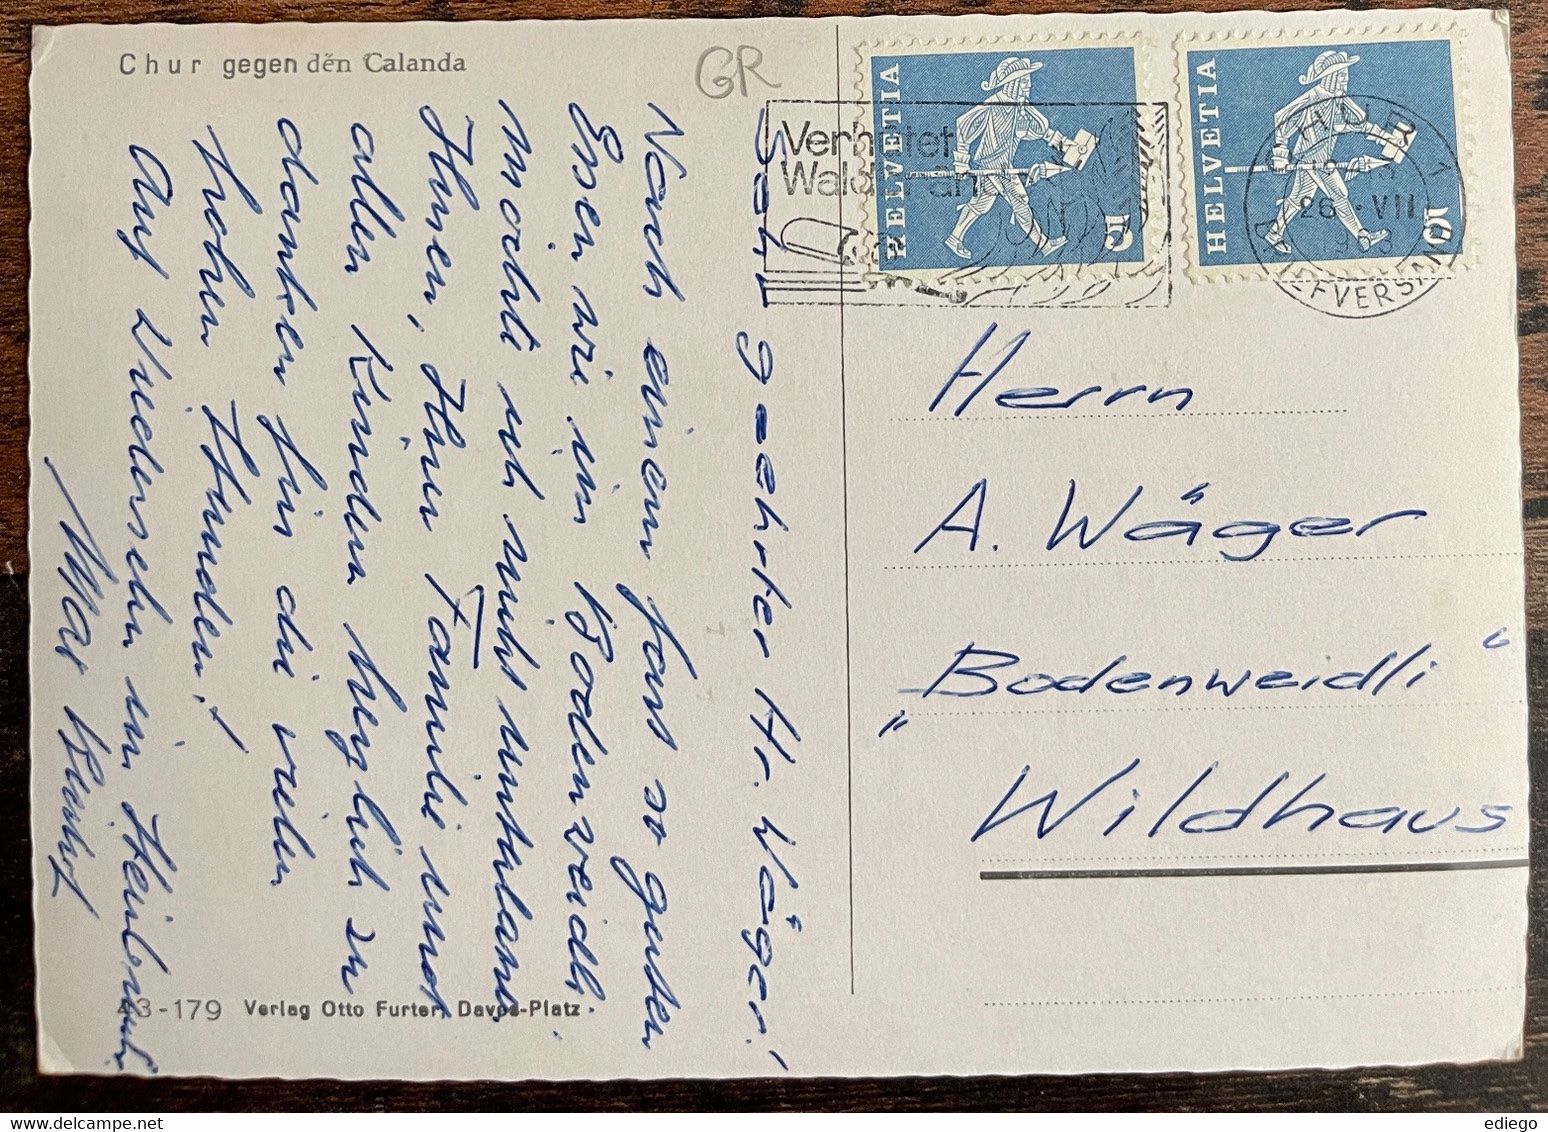 Chur gegen den Calanda
GR
Verhütet
Waldbrände
HELVETIA
10
HELVETIA
10
CHUR 1
26. VII
BRIEFVERSAND
Sehr geehrter Hr. Wäger!
Nach einem fast so guten
Essen wie im Bodenweidli
möchte ich nicht unterlassen
Ihnen, Ihrer Familie und
allen Kindern herzlich zu
danken für die vielen
frohen Stunden!
Auf Wiedersehn im
Max
Herrn
A. Wäger
"Bodenweidli"
Wildhaus
43-179 Verlag Otto Furter, Davos-Platz
edelcampe.net
ediego